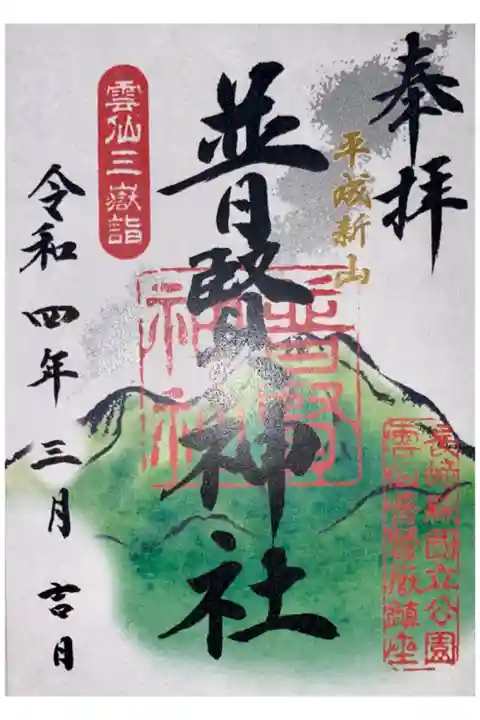 奉拝
平成新山
普賢神社
普賢
神社
雲仙三嶽詣
令和四年三月吉日
長崎県国立公園
雲仙普賢嶽鎮座